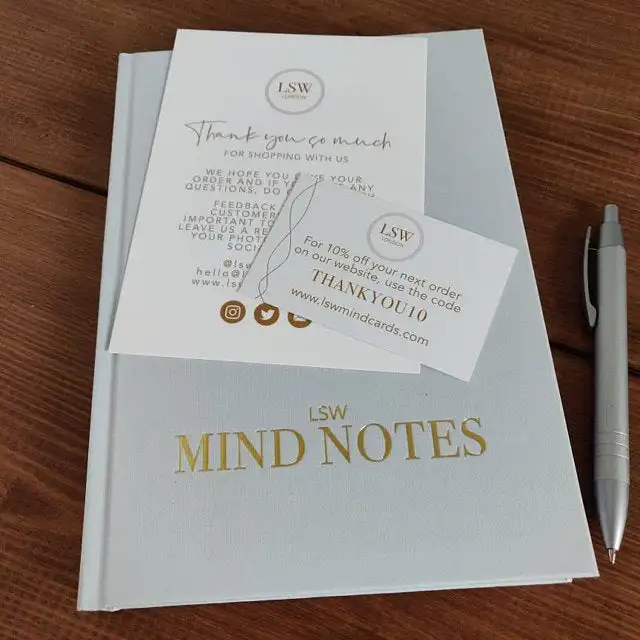 LSW
LONDON
Thank you so much
FOR SHOPPING WITH US
WE HOPE YOU YOUR
ORDER AND IF ANY
QUESTIONS, DO
FEEDBACK
CUSTOMER
IMPORTANT
LEAVE US A
YOUR
@lsw
www.
LSW
LONDON
For 10% off your next order
on our website, use the code
THANKYOU10
www.lswmindcards.com
LSW
MIND NOTES